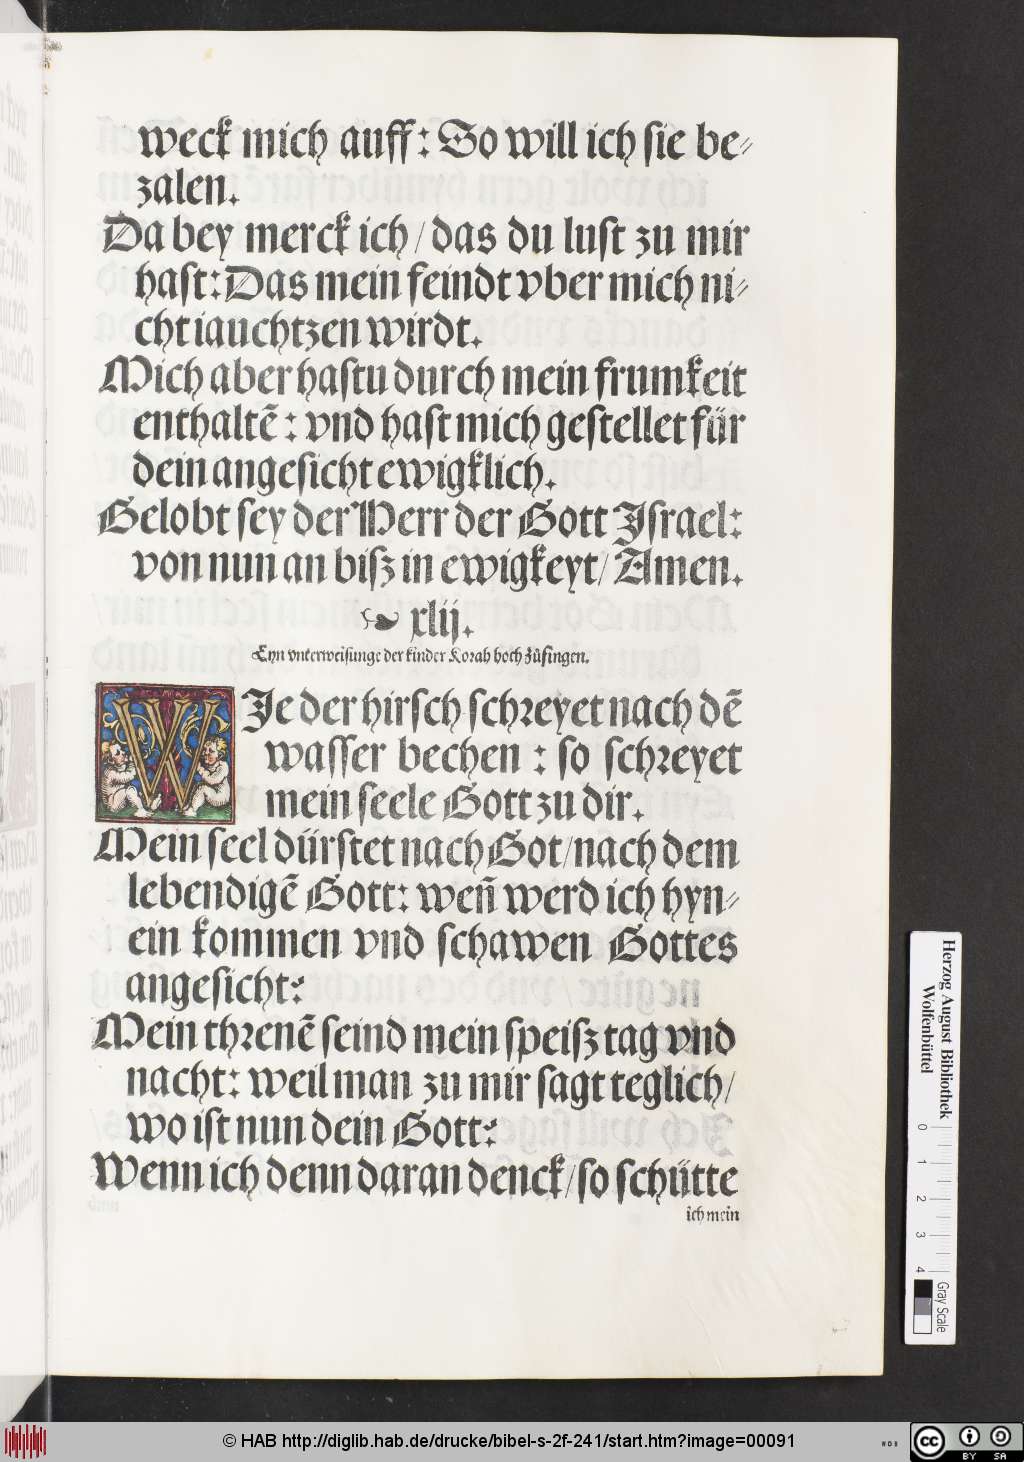 weck mich auff: So will ich sie be⸗
zalen.
Da bey merck ich/ das du lust zu mir
hast: Das mein feindt vber mich ni⸗
cht iauchtzen wirdt.
Mich aber hastu durch mein frumkeit
enthaltē: vnd hast mich gestellet für
dein angesicht ewigklich.
Gelobt sey der Herr der Gott Israel:
von nun an bisz in ewigkeyt/ Amen.
xlij.
Eyn vnterweisunge der kinder Korah hoch zůsingen.
WIe der hirsch schreyet nach dē
wasser bechen: so schreyet
mein seele Gott zu dir.
Mein seel dürstet nach Got/ nach dem
lebendigē Gott: weñ werd ich hyn⸗
ein kommen vnd schawen Gottes
angesicht:
Mein threnē seind mein speisz tag vnd
nacht: weil man zu mir sagt teglich/
wo ist nun dein Gott:
Wenn ich denn daran denck/ so schütte
ich mein
Herzog August Bibliothek
Wolfenbüttel
0 1 2 3 4
Gray Scale
© HAB http://diglib.hab.de/drucke/bibel-s-2f-241/start.htm?image=00091
WDB
cc BY SA